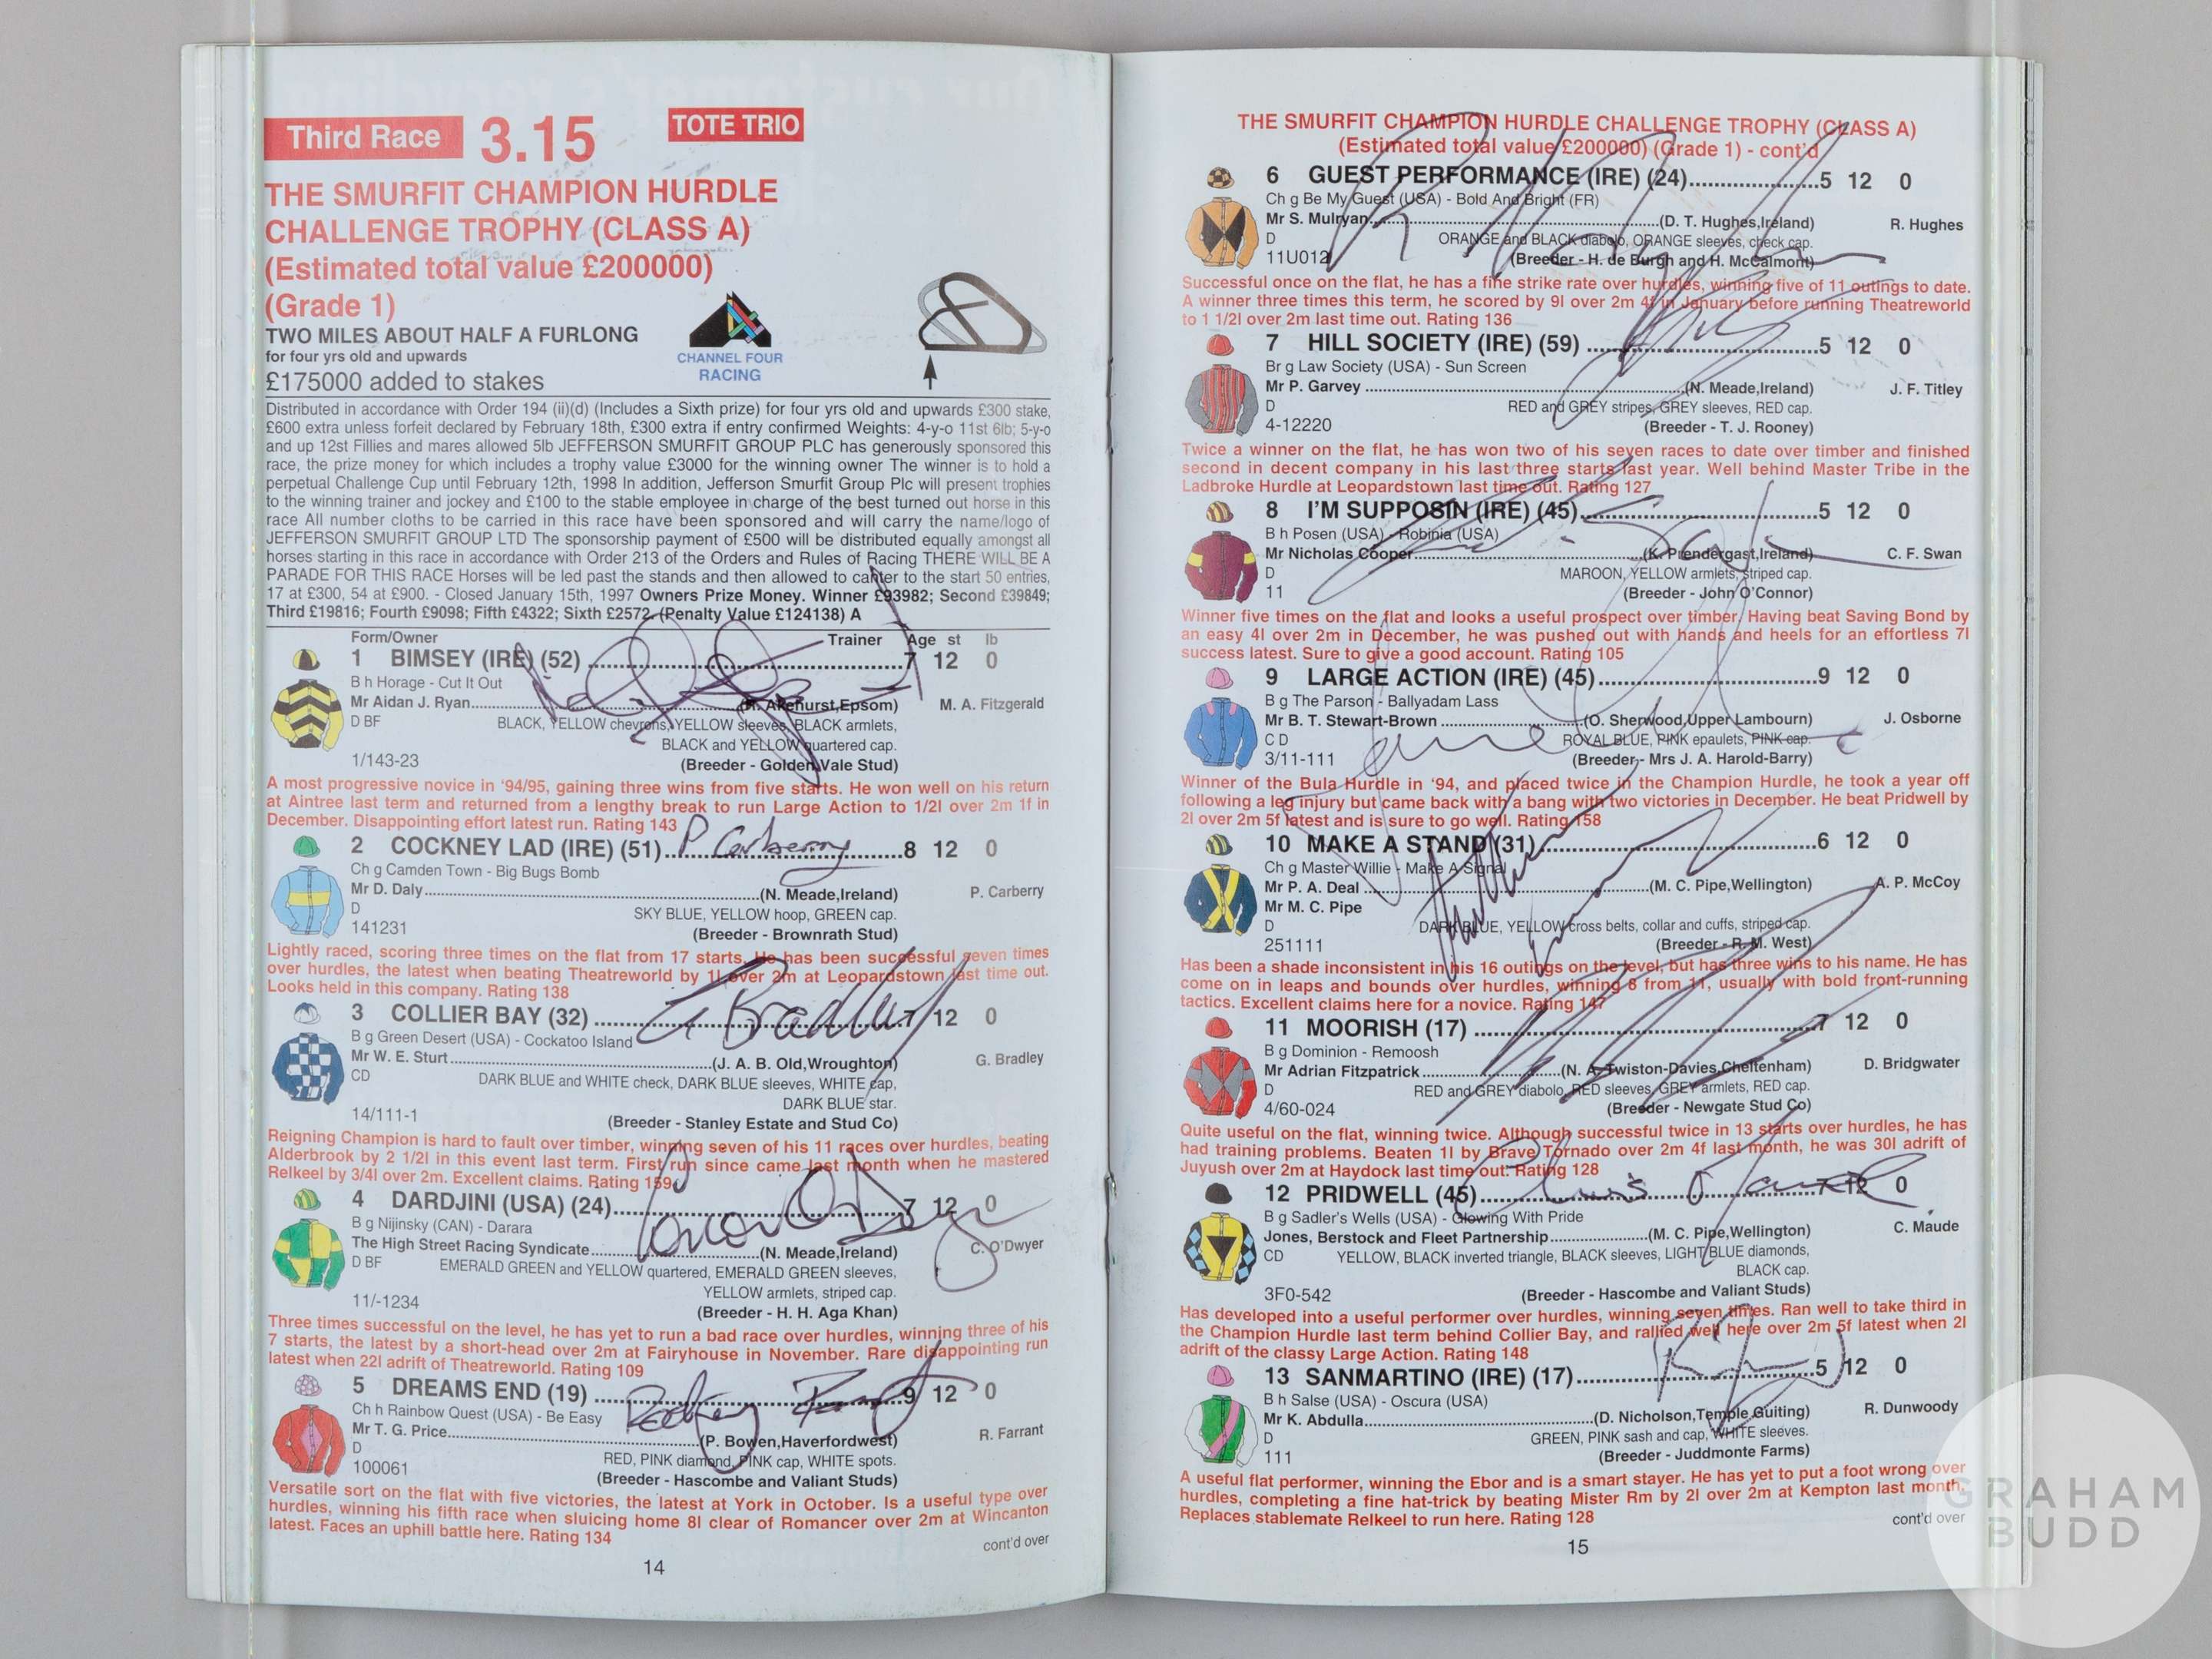 Third Race 3.15 TOTE TRIO
THE SMURFIT CHAMPION HURDLE
CHALLENGE TROPHY (CLASS A)
(Estimated total value £200000)
(Grade 1)
TWO MILES ABOUT HALF A FURLONG
for four yrs old and upwards
£175000 added to stakes
CHANNEL FOUR
RACING
Distributed in accordance with Order 194 (ii)(d) (Includes a Sixth prize) for four yrs old and upwards £300 stake,
£600 extra unless forfeit declared by February 18th, £300 extra if entry confirmed Weights: 4-y-o 11st 6lb; 5-y-o
and up 12st Fillies and mares allowed 5lb JEFFERSON SMURFIT GROUP PLC has generously sponsored this
race, the prize money for which includes a trophy value £3000 for the winning owner The winner is to hold a
perpetual Challenge Cup until February 12th, 1998 In addition, Jefferson Smurfit Group Plc will present trophies
to the winning trainer and jockey and £100 to the stable employee in charge of the best turned out horse in this
race All number cloths to be carried in this race have been sponsored and will carry the name/logo of
JEFFERSON SMURFIT GROUP LTD The sponsorship payment of £500 will be distributed equally amongst all
horses starting in this race in accordance with Order 213 of the Orders and Rules of Racing THERE WILL BE A
PARADE FOR THIS RACE Horses will be led past the stands and then allowed to canter to the start 50 entries,
17 at £300, 54 at £900. - Closed January 15th, 1997 Owners Prize Money. Winner £93982; Second £39849;
Third £19816; Fourth £9098; Fifth £4322; Sixth £2572. (Penalty Value £124138) A
Form/Owner Trainer Age st lb
1 BIMSEY (IRE) (52) 7 12 0
B h Horage - Cut It Out
Mr Aidan J. Ryan (R. Akehurst,Epsom) M. A. Fitzgerald
D BF BLACK, YELLOW chevrons, YELLOW sleeves, BLACK armlets,
BLACK and YELLOW quartered cap.
1/143-23 (Breeder - Golden Vale Stud)
A most progressive novice in '94/95, gaining three wins from five starts. He won well on his return
at Aintree last term and returned from a lengthy break to run Large Action to 1/2l over 2m 1f in
December. Disappointing effort latest run. Rating 143
2 COCKNEY LAD (IRE) (51) P Carberry 8 12 0
Ch g Camden Town - Big Bugs Bomb
Mr D. Daly (N. Meade,Ireland) P. Carberry
D SKY BLUE, YELLOW hoop, GREEN cap.
141231 (Breeder - Brownrath Stud)
Lightly raced, scoring three times on the flat from 17 starts. He has been successful seven times
over hurdles, the latest when beating Theatreworld by 1l over 2m at Leopardstown last time out.
Looks held in this company. Rating 138
3 COLLIER BAY (32) G Bradley 7 12 0
B g Green Desert (USA) - Cockatoo Island
Mr W. E. Sturt (J. A. B. Old,Wroughton) G. Bradley
CD DARK BLUE and WHITE check, DARK BLUE sleeves, WHITE cap,
DARK BLUE star.
14/111-1 (Breeder - Stanley Estate and Stud Co)
Reigning Champion is hard to fault over timber, winning seven of his 11 races over hurdles, beating
Alderbrook by 2 1/2l in this event last term. First run since came last month when he mastered
Relkeel by 3/4l over 2m. Excellent claims. Rating 159
4 DARDJINI (USA) (24) Conor O'Dwyer 7 12 0
B g Nijinsky (CAN) - Darara
The High Street Racing Syndicate (N. Meade,Ireland) C. O'Dwyer
D BF EMERALD GREEN and YELLOW quartered, EMERALD GREEN sleeves,
YELLOW armlets, striped cap.
11/-1234 (Breeder - H. H. Aga Khan)
Three times successful on the level, he has yet to run a bad race over hurdles, winning three of his
7 starts, the latest by a short-head over 2m at Fairyhouse in November. Rare disappointing run
latest when 22l adrift of Theatreworld. Rating 109
5 DREAMS END (19) Rodney Farrant 9 12 0
Ch h Rainbow Quest (USA) - Be Easy
Mr T. G. Price (P. Bowen,Haverfordwest) R. Farrant
D RED, PINK diamond, PINK cap, WHITE spots.
100061 (Breeder - Hascombe and Valiant Studs)
Versatile sort on the flat with five victories, the latest at York in October. Is a useful type over
hurdles, winning his fifth race when sluicing home 8l clear of Romancer over 2m at Wincanton
latest. Faces an uphill battle here. Rating 134
cont'd over
14
THE SMURFIT CHAMPION HURDLE CHALLENGE TROPHY (CLASS A)
(Estimated total value £200000) (Grade 1) - cont'd
6 GUEST PERFORMANCE (IRE) (24) 5 12 0
Ch g Be My Guest (USA) - Bold And Bright (FR)
Mr S. Mulryan (D. T. Hughes,Ireland) R. Hughes
D ORANGE and BLACK diabolo, ORANGE sleeves, check cap.
11U012 (Breeder - H. de Burgh and H. McCalmont)
Successful once on the flat, he has a fine strike rate over hurdles, winning five of 11 outings to date.
A winner three times this term, he scored by 9l over 2m 4f in January before running Theatreworld
to 1 1/2l over 2m last time out. Rating 136
7 HILL SOCIETY (IRE) (59) 5 12 0
Br g Law Society (USA) - Sun Screen
Mr P. Garvey (N. Meade,Ireland) J. F. Titley
D RED and GREY stripes, GREY sleeves, RED cap.
4-12220 (Breeder - T. J. Rooney)
Twice a winner on the flat, he has won two of his seven races to date over timber and finished
second in decent company in his last three starts last year. Well behind Master Tribe in the
Ladbroke Hurdle at Leopardstown last time out. Rating 127
8 I'M SUPPOSIN (IRE) (45) 5 12 0
B h Posen (USA) - Robinia (USA)
Mr Nicholas Cooper (K. Prendergast,Ireland) C. F. Swan
D MAROON, YELLOW armlets, striped cap.
11 (Breeder - John O'Connor)
Winner five times on the flat and looks a useful prospect over timber. Having beat Saving Bond by
an easy 4l over 2m in December, he was pushed out with hands and heels for an effortless 7l
success latest. Sure to give a good account. Rating 105
9 LARGE ACTION (IRE) (45) 9 12 0
B g The Parson - Ballyadam Lass
Mr B. T. Stewart-Brown (O. Sherwood,Upper Lambourn) J. Osborne
C D ROYAL BLUE, PINK epaulets, PINK cap.
3/11-111 (Breeder - Mrs J. A. Harold-Barry)
Winner of the Bula Hurdle in '94, and placed twice in the Champion Hurdle, he took a year off
following a leg injury but came back with a bang with two victories in December. He beat Pridwell by
2l over 2m 5f latest and is sure to go well. Rating 158
10 MAKE A STAND (31) 6 12 0
Ch g Master Willie - Make A Signal
Mr P. A. Deal (M. C. Pipe,Wellington) A. P. McCoy
Mr M. C. Pipe
D DARK BLUE, YELLOW cross belts, collar and cuffs, striped cap.
251111 (Breeder - R. M. West)
Has been a shade inconsistent in his 16 outings on the level, but has three wins to his name. He has
come on in leaps and bounds over hurdles, winning 8 from 11, usually with bold front-running
tactics. Excellent claims here for a novice. Rating 147
11 MOORISH (17) 7 12 0
B g Dominion - Remoosh
Mr Adrian Fitzpatrick (N. A. Twiston-Davies,Cheltenham) D. Bridgwater
D RED and GREY diabolo, RED sleeves, GREY armlets, RED cap.
4/60-024 (Breeder - Newgate Stud Co)
Quite useful on the flat, winning twice. Although successful twice in 13 starts over hurdles, he has
had training problems. Beaten 1l by Brave Tornado over 2m 4f last month, he was 30l adrift of
Juyush over 2m at Haydock last time out. Rating 128
12 PRIDWELL (45) Chris Maude 7 12 0
B g Sadler's Wells (USA) - Glowing With Pride
Jones, Berstock and Fleet Partnership (M. C. Pipe,Wellington) C. Maude
CD YELLOW, BLACK inverted triangle, BLACK sleeves, LIGHT BLUE diamonds,
BLACK cap.
3F0-542 (Breeder - Hascombe and Valiant Studs)
Has developed into a useful performer over hurdles, winning seven times. Ran well to take third in
the Champion Hurdle last term behind Collier Bay, and rallied well here over 2m 5f latest when 2l
adrift of the classy Large Action. Rating 148
13 SANMARTINO (IRE) (17) 5 12 0
B h Salse (USA) - Oscura (USA)
Mr K. Abdulla (D. Nicholson,Temple Guiting) R. Dunwoody
D GREEN, PINK sash and cap, WHITE sleeves.
111 (Breeder - Juddmonte Farms)
A useful flat performer, winning the Ebor and is a smart stayer. He has yet to put a foot wrong over
hurdles, completing a fine hat-trick by beating Mister Rm by 2l over 2m at Kempton last month.
Replaces stablemate Relkeel to run here. Rating 128
cont'd over
15
GRAHAM
BUDD